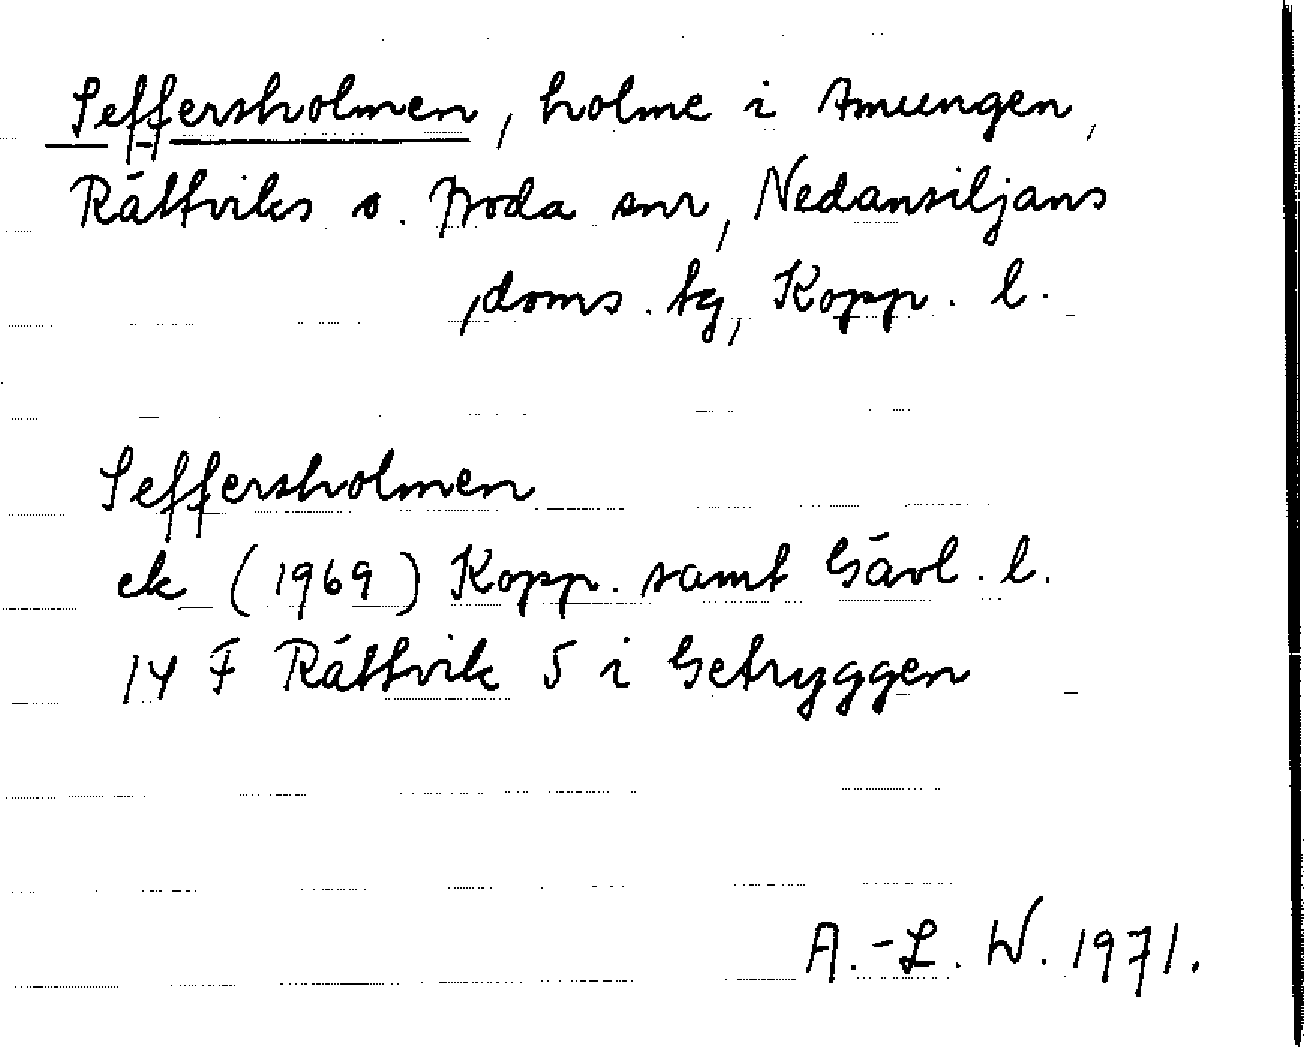 Seffersholmen, holme i Amungen,
Rättviks o. Boda snr, Nedansiljans
doms. tg, Kopp. l.
Seffersholmen
ek (1969) Kopp. samt Gävl. l.
14 F Rättvik 5 i Getryggen
A.-L. W. 1971.